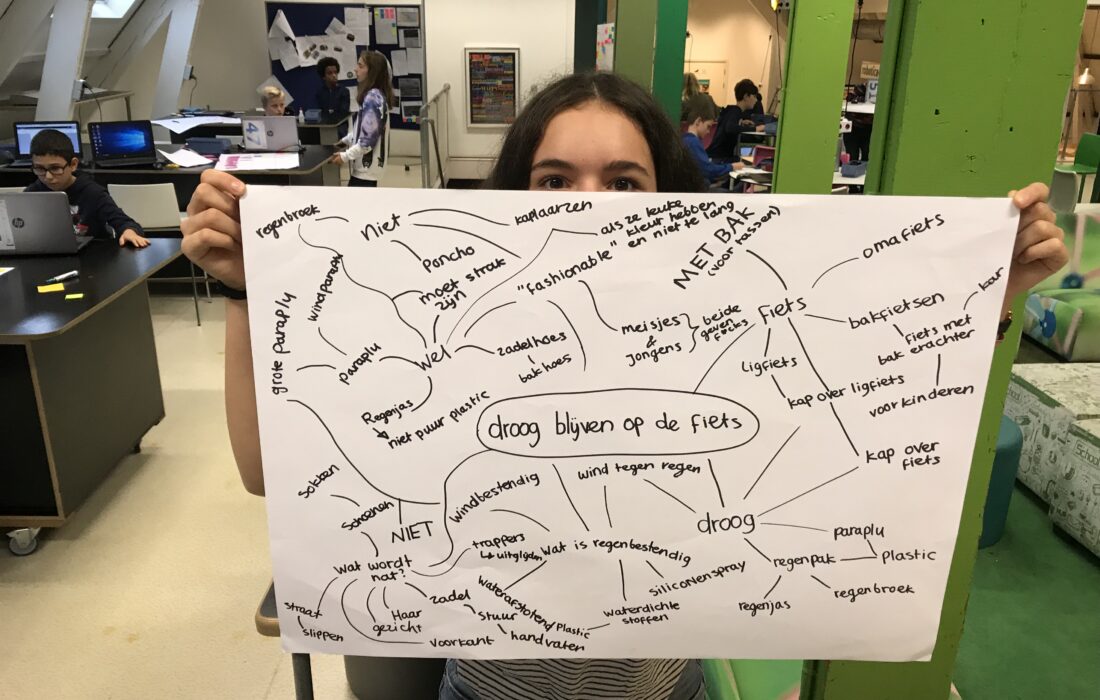 regenbroek
Niet
kaplaarzen
als ze leuke
kleur hebben
en niet te lang
Poncho
moet strak
zijn
"fashionable"
MET BAK
(voor tassen)
omafiets
windparaplu
grote paraplu
paraplu
wel
zadelhoes
bakhoes
meisjes
&
jongens
beide
geven
f*cks
fiets
bakfietsen
fiets met
bak erachter
voor kinderen
Ligfiets
kap over ligfiets
kap over
fiets
Regenjas
niet puur plastic
droog blijven op de fiets
sokken
schoenen
NIET
windbestendig
wind tegen regen
droog
wat is regenbestendig
trappers
uitglijden
wat wordt
nat?
waterafstotend
plastic
waterdichte
stoffen
siliconenspray
paraplu
regenpak
plastic
regenjas
regenbroek
straat
slippen
Haar
gezicht
zadel
stuur
handvaten
voorkant